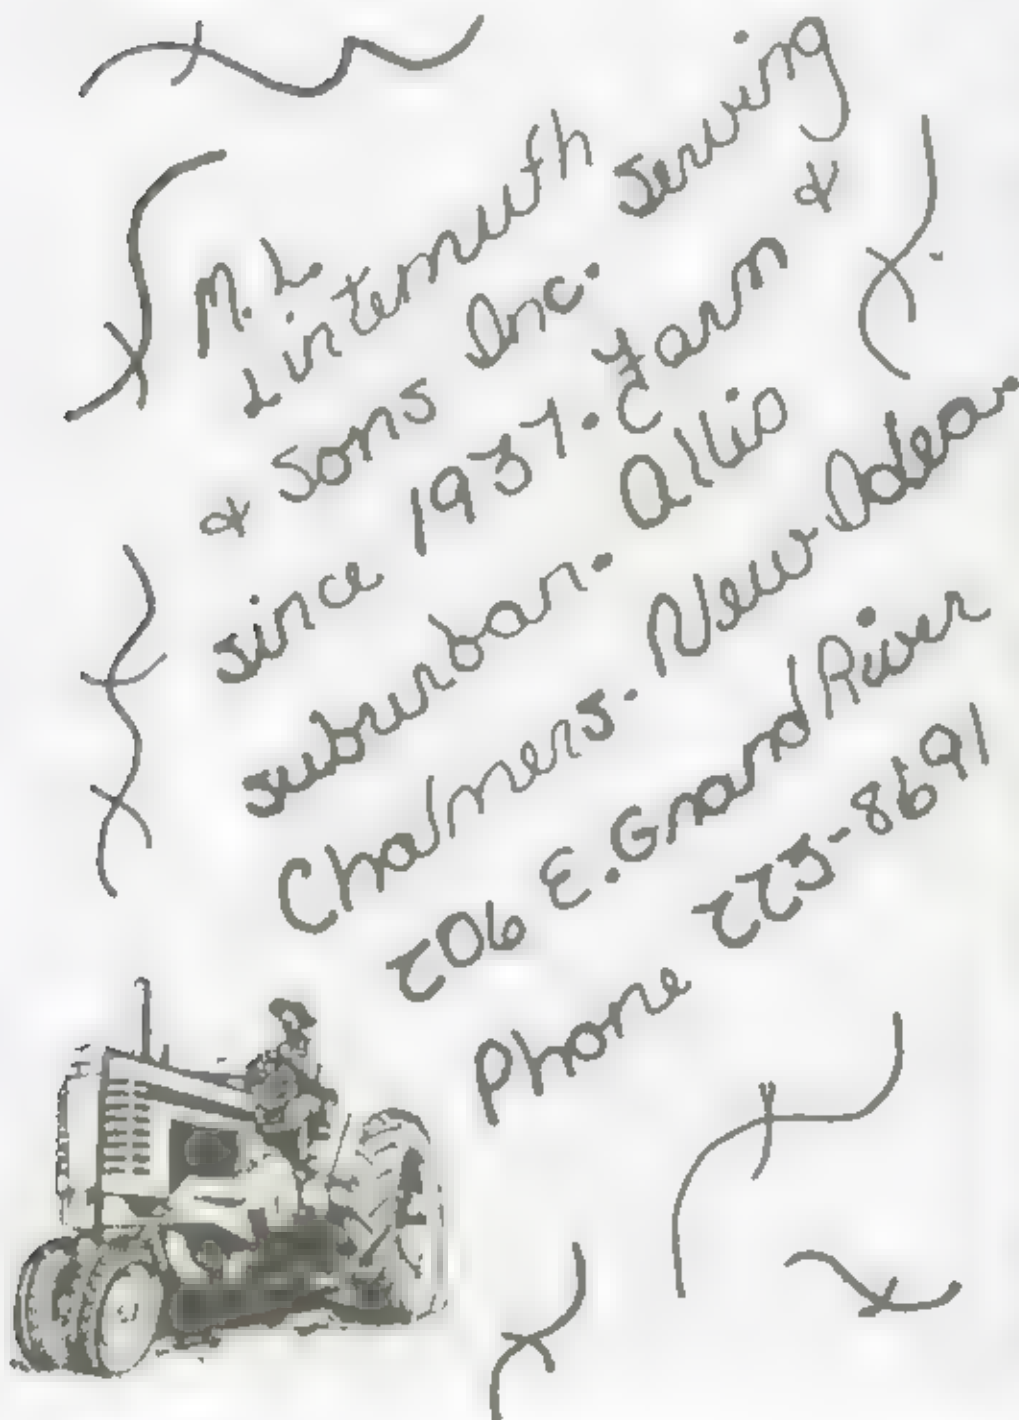 M. L.
Lintemuth
& Sons Inc. Serving
since 1937. Farm &
suburban. Allis
Chalmers. New Idea.
206 E. Grand River
Phone 223-8691